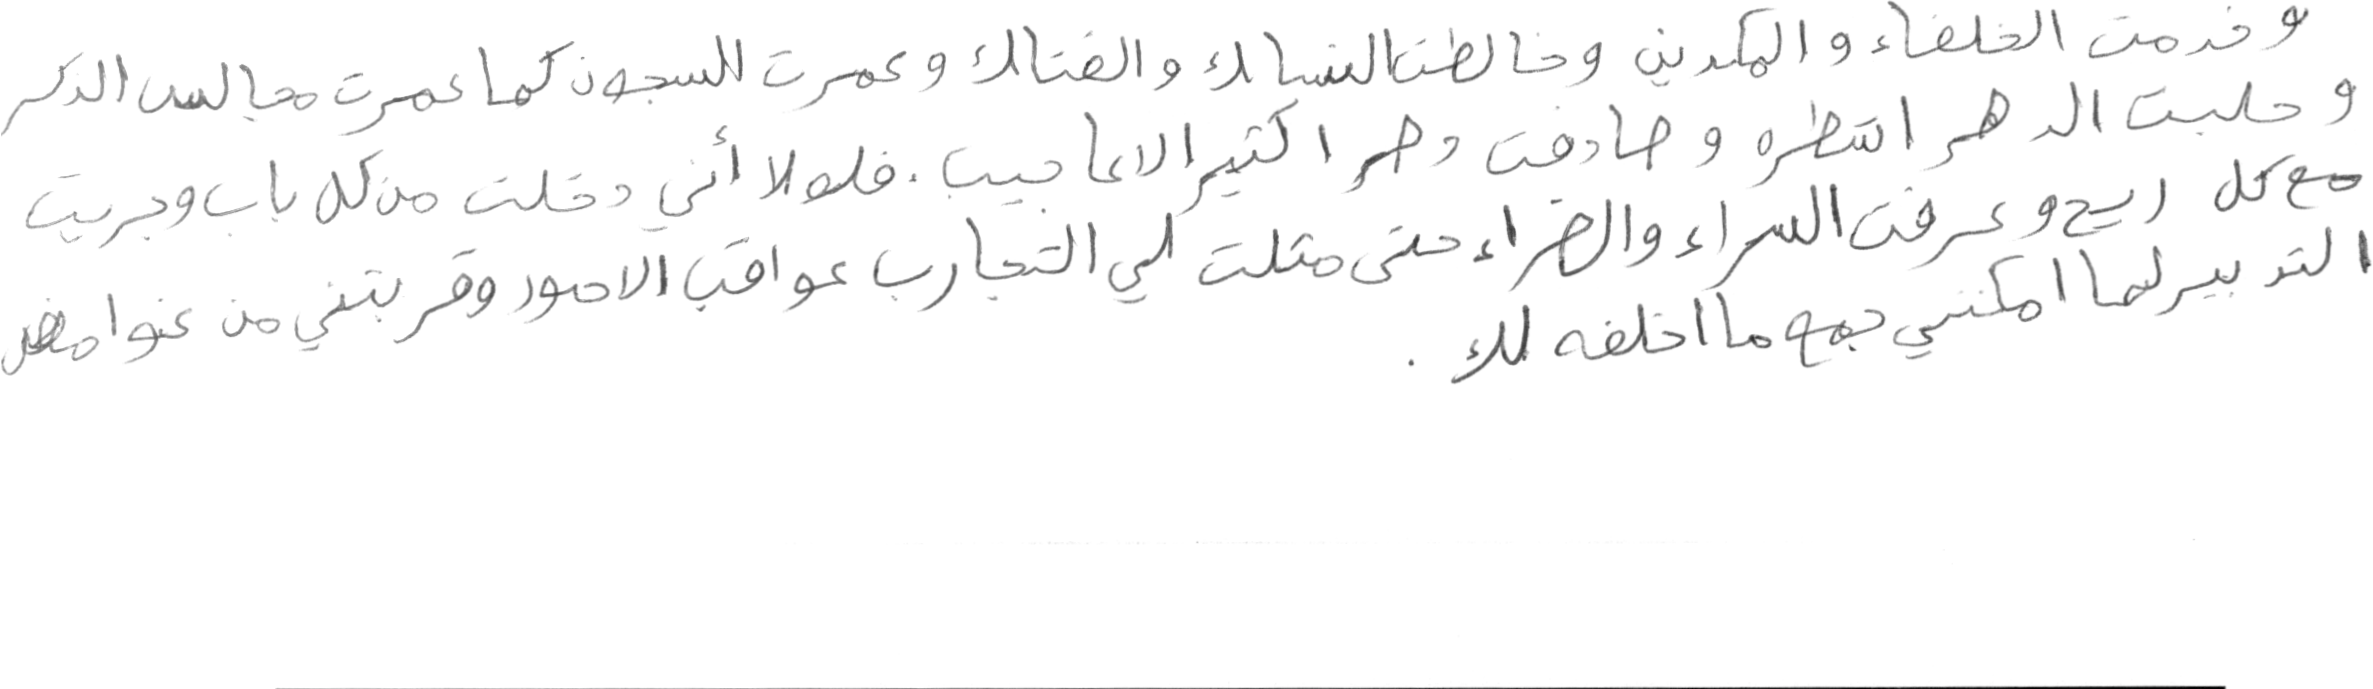 وخدمت الخلفاء والمكدين وخالطت النساك والفتاك وعمرت للسجون كما عمرت مجالس الذكر
وحلبت الدهر اشطره وصادفت دهرا كثير الاعاجيب. فلولا أني دخلت من كل باب وجريت
مع كل ريح وعرفت السراء والضراء حتى مثلت لي التجارب عواقب الامور وقربتني من غوامض
التدبير لما امكنني جمع ما اخلفه لك .